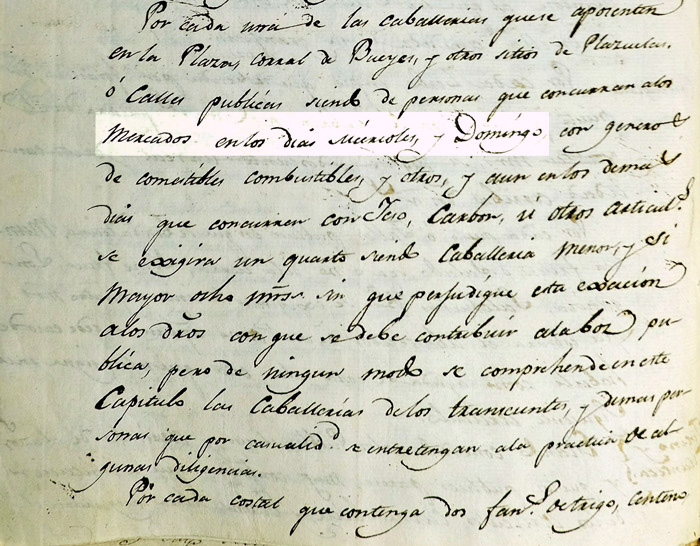 Por cada una de las caballerias que se aposenten
en la Plaza, corral de Bueyes, y otros sitios de Plazuelas,
ó Calles publicas siendo de personas que concurran alos
Mercados en los dias Miércoles, y Domingo, con generos
de comestibles combustibles, y otros, y aun en los demas
dias que concurren con Yeso, Carbon, ú otros articul.s
se exigirá un quarto siendo Caballeria menor, y si
Mayor ocho mrs. sin que perjudique esta exación
alos dros con que se debe contribuir ala boz pu-
blica, pero de ningun modo se comprehende en este
Capitulo las Caballerias delos transeuntes, y demas per
sonas que por casualid.d se entretengan ala practica de al
gunas diligencias.
Por cada costal que contenga dos fan.s de trigo, centeno